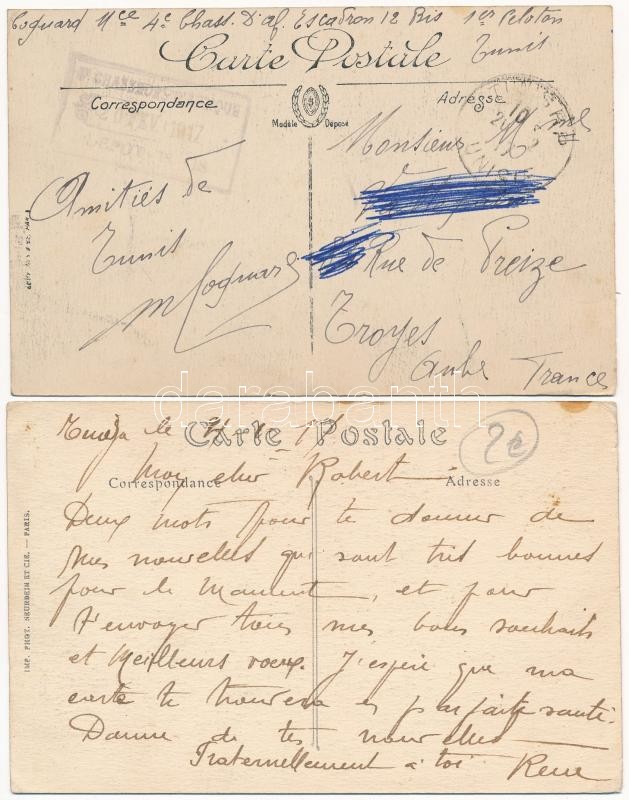 Coquard Mce 4e Chass. D'af. Escadron 12 Bis 1er Peloton
Tunis
Carte Postale
Correspondance
Adresse
Modèle Déposé
1917
Monsieur
Amitiés de
Tunis
M Coquard
Rue de Preize
Troyes
Aube France
darabanth
Carte Postale
2€
Mon cher Robert
Correspondance
Adresse
Deux mots pour te donner de
mes nouvelles qui sont très bonnes
pour le moment, et pour
t'envoyer tous mes bons souhaits
et meilleurs voeux. J'espère que ma
carte te trouvera en parfaite santé.
Donne de tes nouvelles
Fraternellement à toi René
IMP. PHOT. NEURDEIN ET CIE. — PARIS.